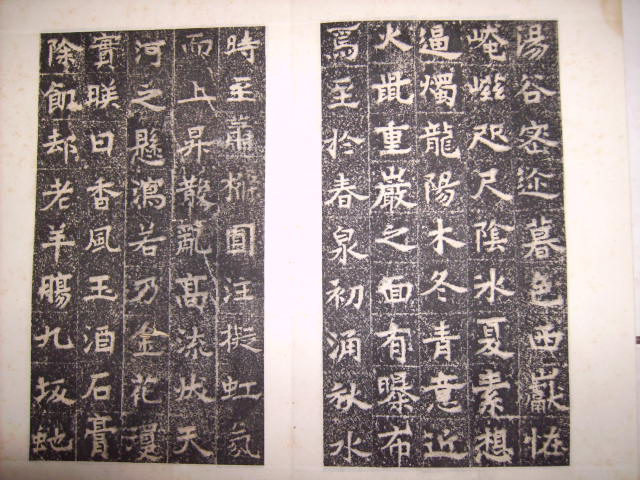 湯谷密迩暮色西巖恠
崦嵫咫尺陰氷夏素想
逼燭龍陽木冬青意近
火重巖之面有曝布
焉至於春泉初涌秋水
時至蕭圓注擬虹氛
而上昇散亂高流状天
河之懸瀉若乃金花漫
實暎日香風玉酒石膏
除飢却老羊腸九坂虵